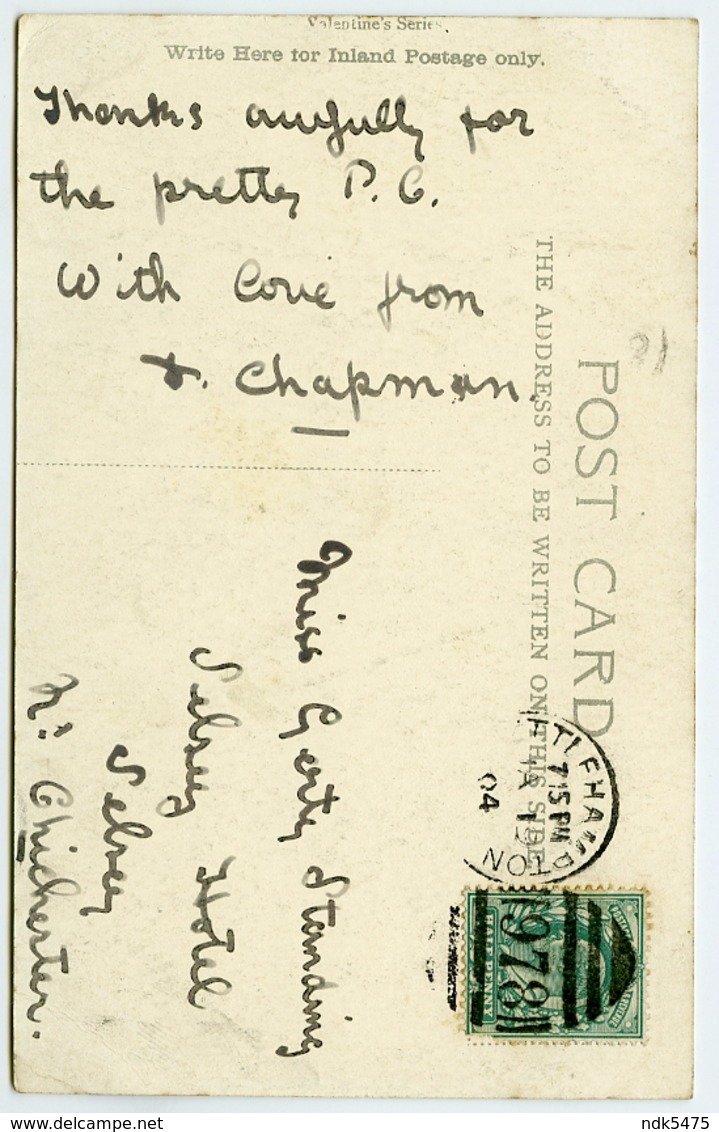 Valentine's Series
Write Here for Inland Postage only.
Thanks awfully for
the pretty P.C.
With love from
Chapman.
POST CARD
THE ADDRESS TO BE WRITTEN ON THIS SIDE
Miss Gerty Standing
Selsey Hotel
Selsey
Nr. Chichester.
LITTLEHAMPTON
7.15 PM
04
978
ndk5475
delcampe.net